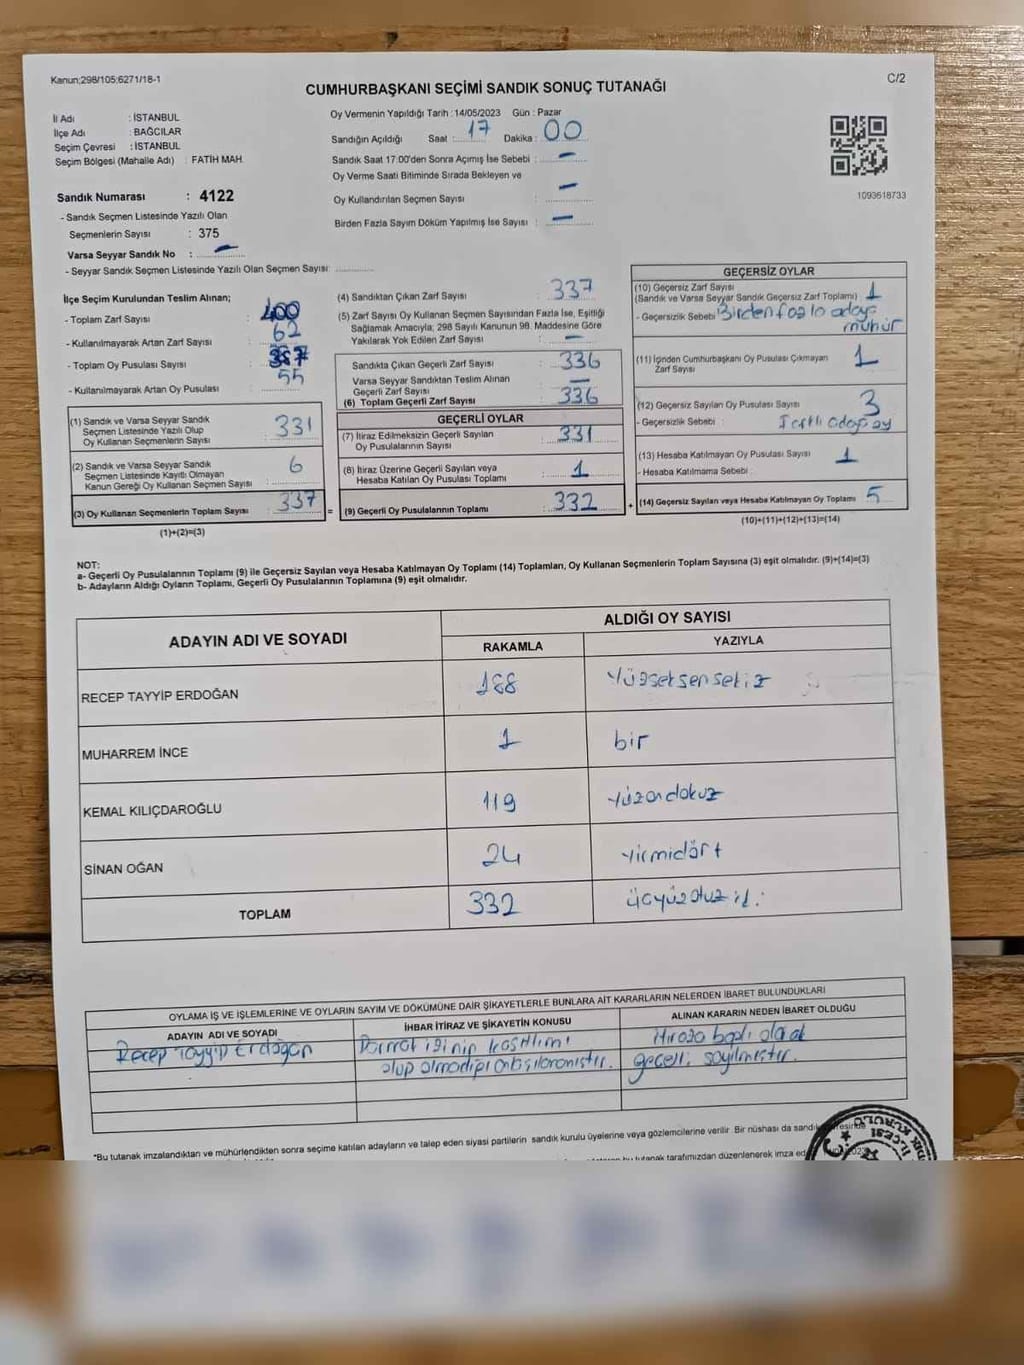 Kanun:298/105;6271/18-1
C/2
CUMHURBAŞKANI SEÇİMİ SANDIK SONUÇ TUTANAĞI
İl Adı : İSTANBUL
İlçe Adı : BAĞCILAR
Seçim Çevresi : İSTANBUL
Seçim Bölgesi (Mahalle Adı) : FATİH MAH.
Sandık Numarası : 4122
- Sandık Seçmen Listesinde Yazılı Olan
Seçmenlerin Sayısı : 375
Varsa Seyyar Sandık No : –
- Seyyar Sandık Seçmen Listesinde Yazılı Olan Seçmen Sayısı:
Oy Vermenin Yapıldığı Tarih : 14/05/2023 Gün : Pazar
Sandığın Açıldığı Saat : 17 Dakika : 00
Sandık Saat 17:00'den Sonra Açımış İse Sebebi : –
Oy Verme Saati Bitiminde Sırada Bekleyen ve
Oy Kullandırılan Seçmen Sayısı : –
Birden Fazla Sayım Döküm Yapılmış İse Sayısı : –
1093618733
İlçe Seçim Kurulundan Teslim Alınan;
- Toplam Zarf Sayısı : 400
- Kullanılmayarak Artan Zarf Sayısı : 62
- Toplam Oy Pusulası Sayısı : 387
- Kullanılmayarak Artan Oy Pusulası : 55
(1) Sandık ve Varsa Seyyar Sandık
Seçmen Listesinde Yazılı Olup
Oy Kullanan Seçmenlerin Sayısı : 331
(2) Sandık ve Varsa Seyyar Sandık
Seçmen Listesinde Kayıtlı Olmayan
Kanun Gereği Oy Kullanan Seçmen Sayısı : 6
(3) Oy Kullanan Seçmenlerin Toplam Sayısı : 337 =
(1)+(2)=(3)
(4) Sandıktan Çıkan Zarf Sayısı : 337
(5) Zarf Sayısı Oy Kullanan Seçmen Sayısından Fazla İse, Eşitliği
Sağlamak Amacıyla; 298 Sayılı Kanunun 98. Maddesine Göre
Yakılarak Yok Edilen Zarf Sayısı : –
Sandıkta Çıkan Geçerli Zarf Sayısı : 336
Varsa Seyyar Sandıktan Teslim Alınan
Geçerli Zarf Sayısı : –
(6) Toplam Geçerli Zarf Sayısı : 336
GEÇERLİ OYLAR
(7) İtiraz Edilmeksizin Geçerli Sayılan
Oy Pusulasının Sayısı : 331
(8) İtiraz Üzerine Geçerli Sayılan veya
Hesaba Katılan Oy Pusulası Toplamı : 1
(9) Geçerli Oy Pusulalarının Toplamı : 332 +
GEÇERSİZ OYLAR
(10) Geçersiz Zarf Sayısı
(Sandık ve Varsa Seyyar Sandık Geçersiz Zarf Toplamı) : 1
- Geçersizlik Sebebi : Birden fazla adaya
mühür
(11) İçinden Cumhurbaşkanı Oy Pusulası Çıkmayan
Zarf Sayısı : 1
(12) Geçersiz Sayılan Oy Pusulası Sayısı : 3
- Geçersizlik Sebebi :
(13) Hesaba Katılmayan Oy Pusulası Sayısı : 1
- Hesaba Katılmama Sebebi :
(14) Geçersiz Sayılan veya Hesaba Katılmayan Oy Toplamı : 5
(10)+(11)+(12)+(13)=(14)
NOT:
a- Geçerli Oy Pusulalarının Toplamı (9) ile Geçersiz Sayılan veya Hesaba Katılmayan Oy Toplamı (14) Toplamları, Oy Kullanan Seçmenlerin Toplam Sayısına (3) eşit olmalıdır. (9)+(14)=(3)
b- Adayların Aldığı Oyların Toplamı, Geçerli Oy Pusulalarının Toplamına (9) eşit olmalıdır.
ADAYIN ADI VE SOYADI
ALDIĞI OY SAYISI
RAKAMLA YAZIYLA
RECEP TAYYİP ERDOĞAN 188 Yüzseksensekiz
MUHARREM İNCE 1 bir
KEMAL KILIÇDAROĞLU 119 Yüzondokuz
SİNAN OĞAN 24 Yirmidört
TOPLAM 332 üçyüzotuziki
OYLAMA İŞ VE İŞLEMLERİNE VE OYLARIN SAYIM VE DÖKÜMÜNE DAİR ŞİKAYETLERLE BUNLARA AİT KARARLARIN NELERDEN İBARET BULUNDUKLARI
ADAYIN ADI VE SOYADI
İHBAR İTİRAZ VE ŞİKAYETİN KONUSU
ALINAN KARARIN NEDEN İBARET OLDUĞU
Recep Tayyip Erdoğan
Parmak izinin kasıtlımı
olup olmadığı anlaşılamamıştır.
İtiraza bağlı olarak
geçerli sayılmıştır.
*Bu tutanak imzalandıktan ve mühürlendikten sonra seçime katılan adayların ve talep eden siyasi partilerin sandık kurulu üyelerine veya gözlemcilerine verilir. Bir nüshası da sandık
bu tutanak tarafımızdan düzenlenerek imza